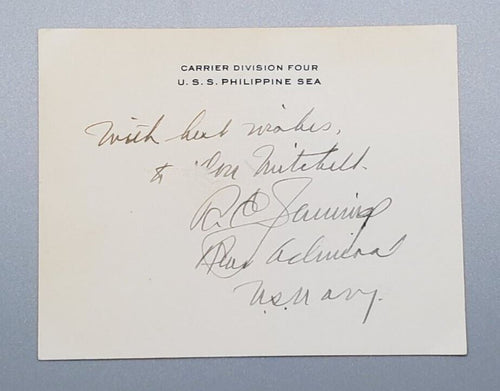 CARRIER DIVISION FOUR
U.S.S. PHILIPPINE SEA
With best wishes,
to Don Mitchell.
R.E.
Rear Admiral
U.S. Navy.